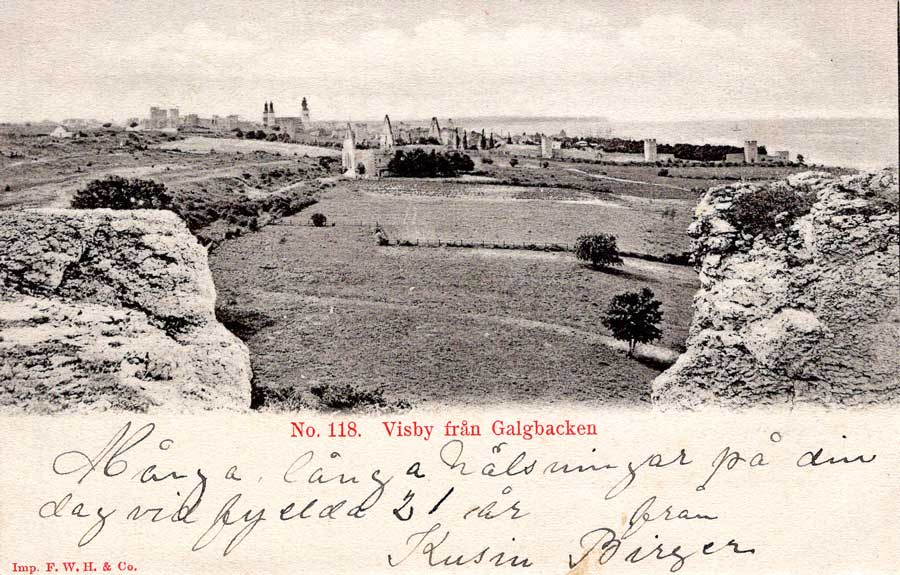 No. 118. Visby från Galgbacken
Många, långa hälsningar på din
dag vid fyllda 21 år från
Kusin Birger
Imp. F. W. H. & Co.